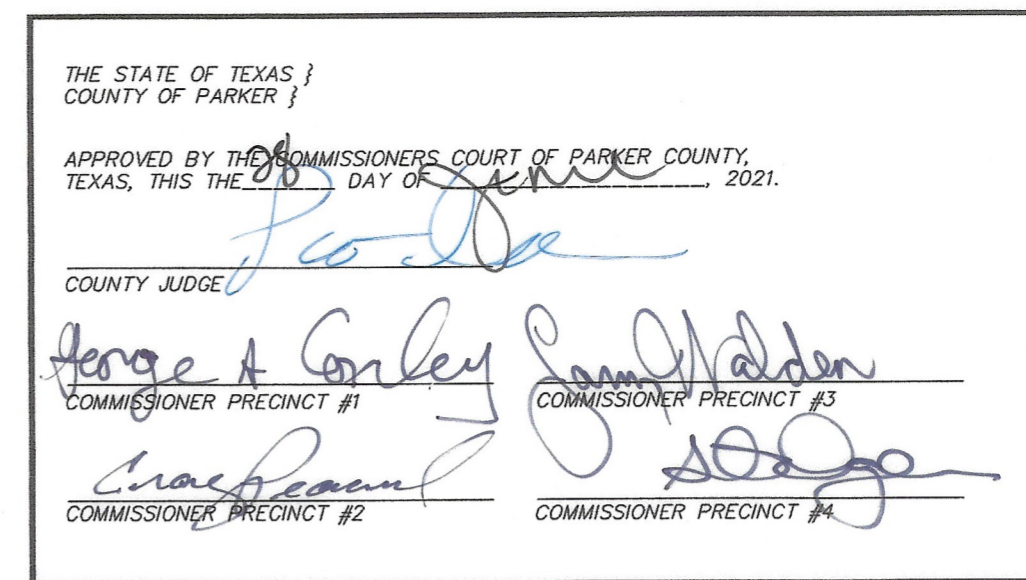 THE STATE OF TEXAS }
COUNTY OF PARKER }
APPROVED BY THE COMMISSIONERS COURT OF PARKER COUNTY,
TEXAS, THIS THE 28 DAY OF , 2021.
COUNTY JUDGE
George A Conley
COMMISSIONER PRECINCT #1
Larry Walden
COMMISSIONER PRECINCT #3
Craig Peacock
COMMISSIONER PRECINCT #2
COMMISSIONER PRECINCT #4